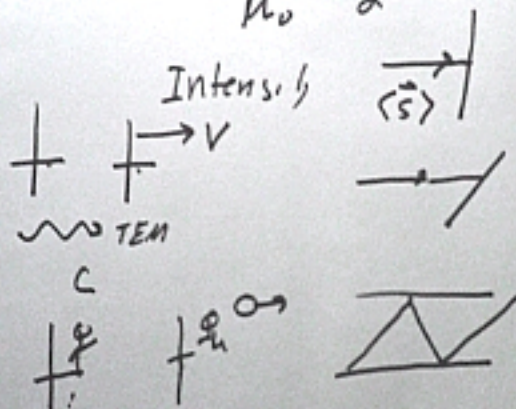 μ₀ 2
Intensity
⟨S⃗⟩
V
TEM
C